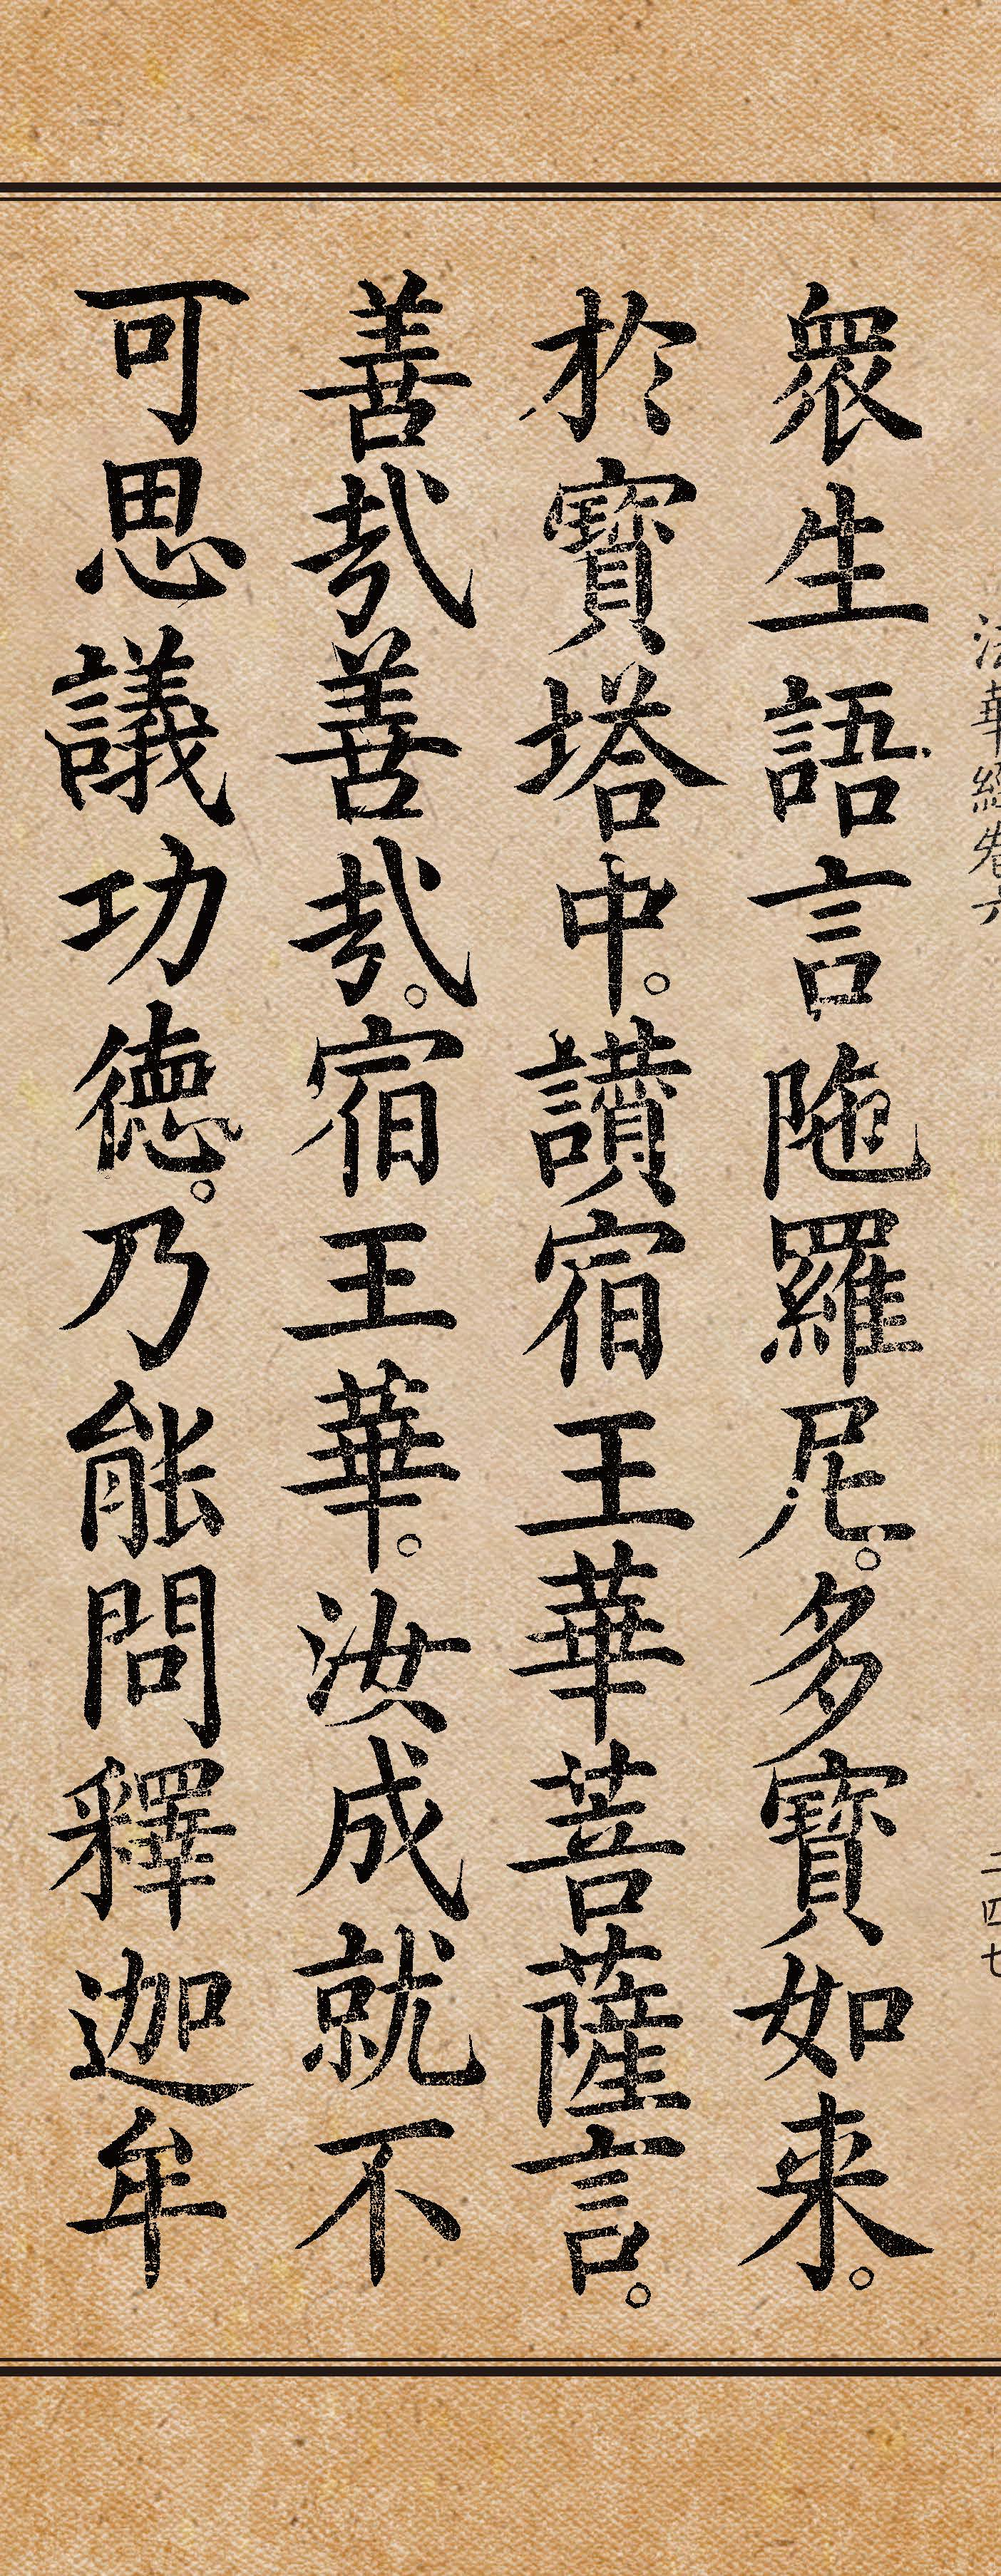 法華經卷六 二四七
衆生語言陁羅尼。多寶如来。
於寶塔中。讃宿王華菩薩言。
善㢤善㢤。宿王華。汝成就不
可思議功德。乃能問釋迦牟